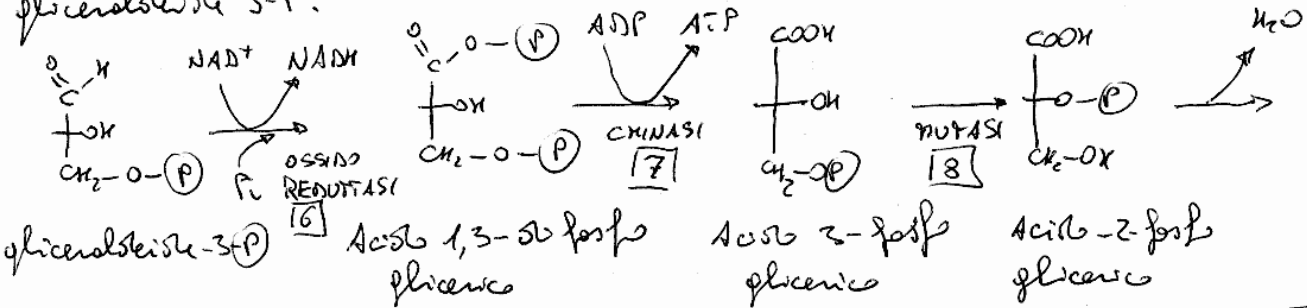 gliceraldeide 3-P.
NAD+ NADH
ADP ATP
H2O
O H C OH CH2-O-P
Pi OSSIDO REDUTTASI 6
O C O-P OH CH2-O-P
CHINASI 7
COOH OH CH2-OP
MUTASI 8
COOH O-P CH2-OH
gliceraldeide-3-P
Acido 1,3-di fosfo glicerico
Acido 3-fosfo glicerico
Acido-2-fosfo glicerico